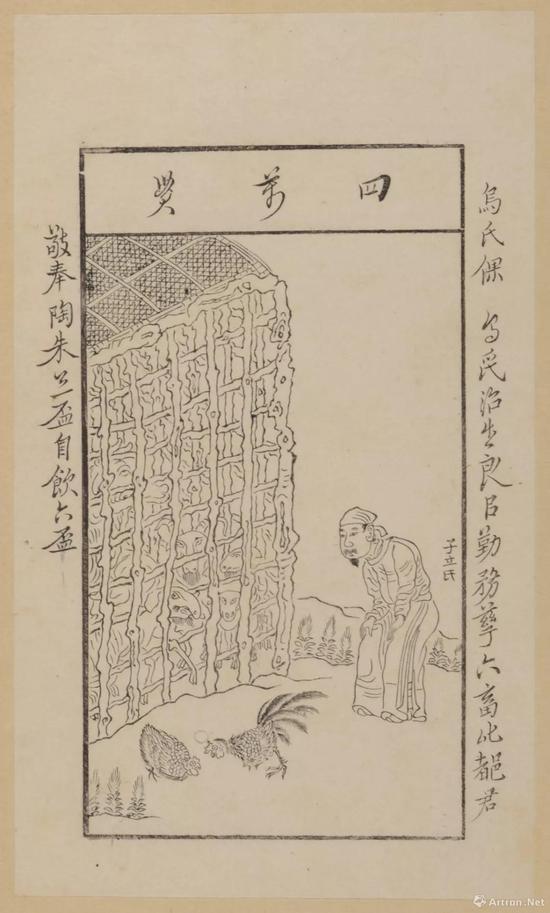 四萬貫
烏氏倮 氏治生良㠯勤務孳六畜比都君
子立氏
敬奉陶朱公一盃自飲六盃
Artron.Net